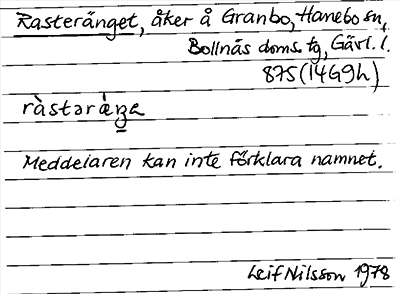 Rasteränget, åker å Granbo, Hanebo sn,
Bollnäs doms. tg, Gävl. l.
875 (14G9h)
ràstəräŋe
Meddelaren kan inte förklara namnet.
Leif Nilsson 1978